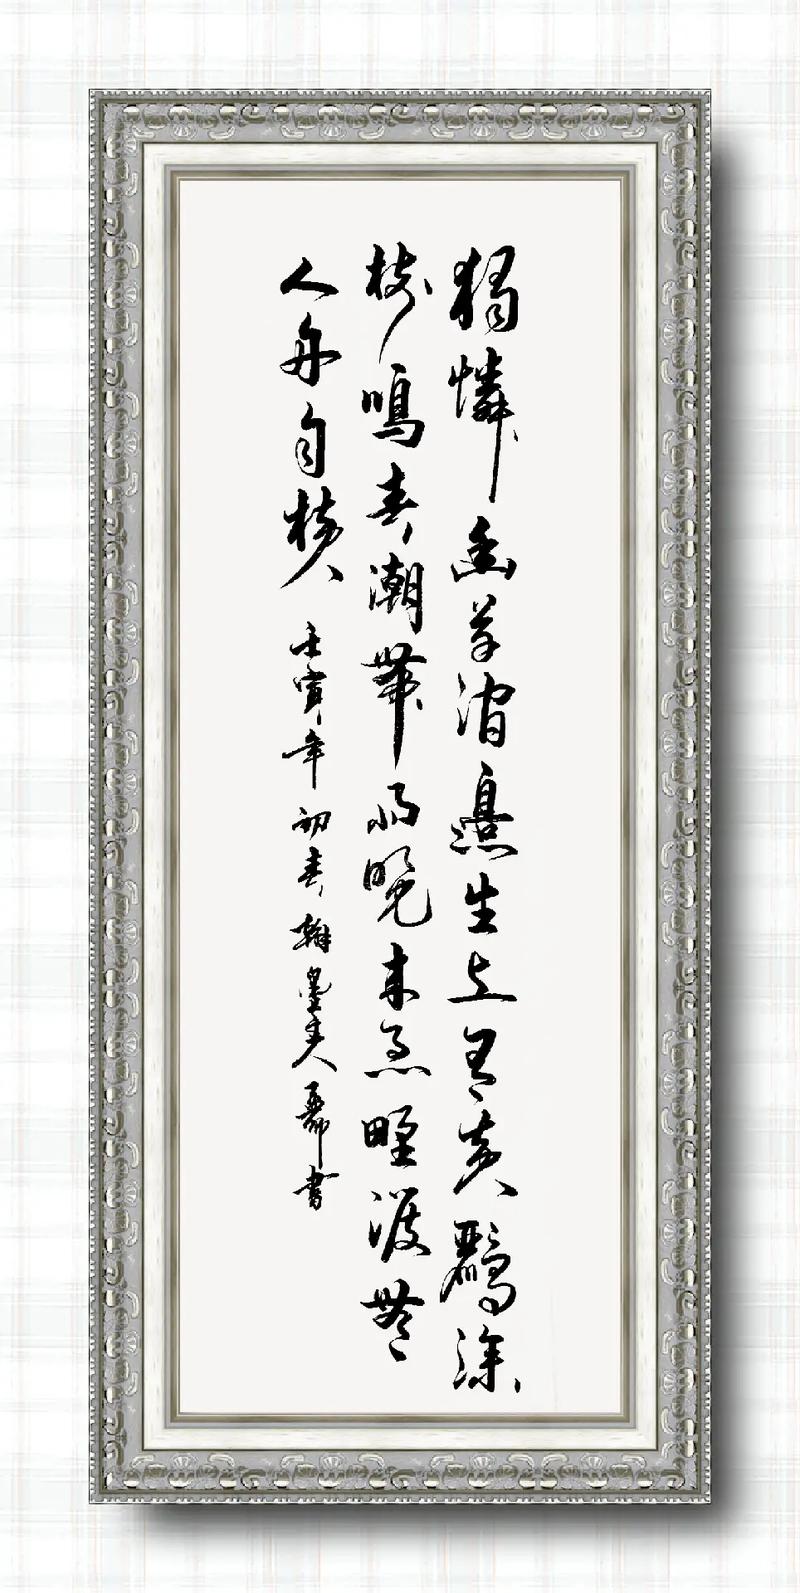 獨憐幽草澗邊生上有黄鸝深
樹鳴春潮帶雨晚来急野渡無
人舟自横
壬寅年初春翰墨書